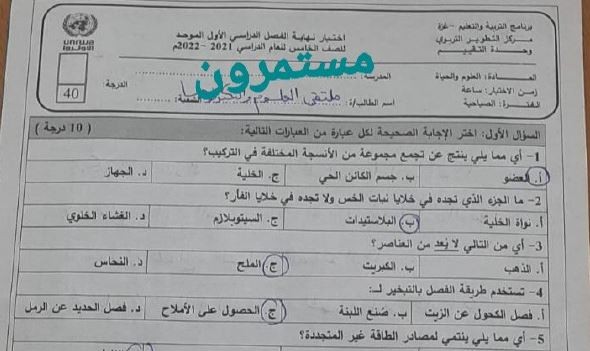 برنامج التربية والتعليم - غزة
مركز التطوير التربوي
وحدة التقييم
اختبار نهاية الفصل الدراسي الأول الموحد
للصف الخامس للعام الدراسي 2021 - 2022م
unrwa
الأونروا
مستمرون
المــــادة: العلوم والحياة
المدرسة:
زمن الاختبار: ساعة
الدرجة:
40
الفترة: الصباحية
اسم الطالب/ة:
ملتقى العلوم
السؤال الأول: اختر الإجابة الصحيحة لكل عبارة من العبارات التالية: ( 10 درجة )
1- أي مما يلي ينتج عن تجمع مجموعة من الأنسجة المختلفة في التركيب؟
أ. العضو ب. جسم الكائن الحي ج. الخلية د. الجهاز
2- ما الجزء الذي تجده في خلايا نبات الخس ولا تجده في خلايا الفأر؟
أ. نواة الخلية ب. البلاستيدات ج. السيتوبلازم د. الغشاء الخلوي
3- أي من التالي لا يُعد من العناصر؟
أ. الذهب ب. الكبريت ج. الملح د. النحاس
4- تستخدم طريقة الفصل بالتبخير لـ:
أ. فصل الكحول عن الزيت ب. صُنع اللبنة ج. الحصول على الأملاح د. فصل الحديد عن الرمل
5- أي مما يلي ينتمي لمصادر الطاقة غير المتجددة؟